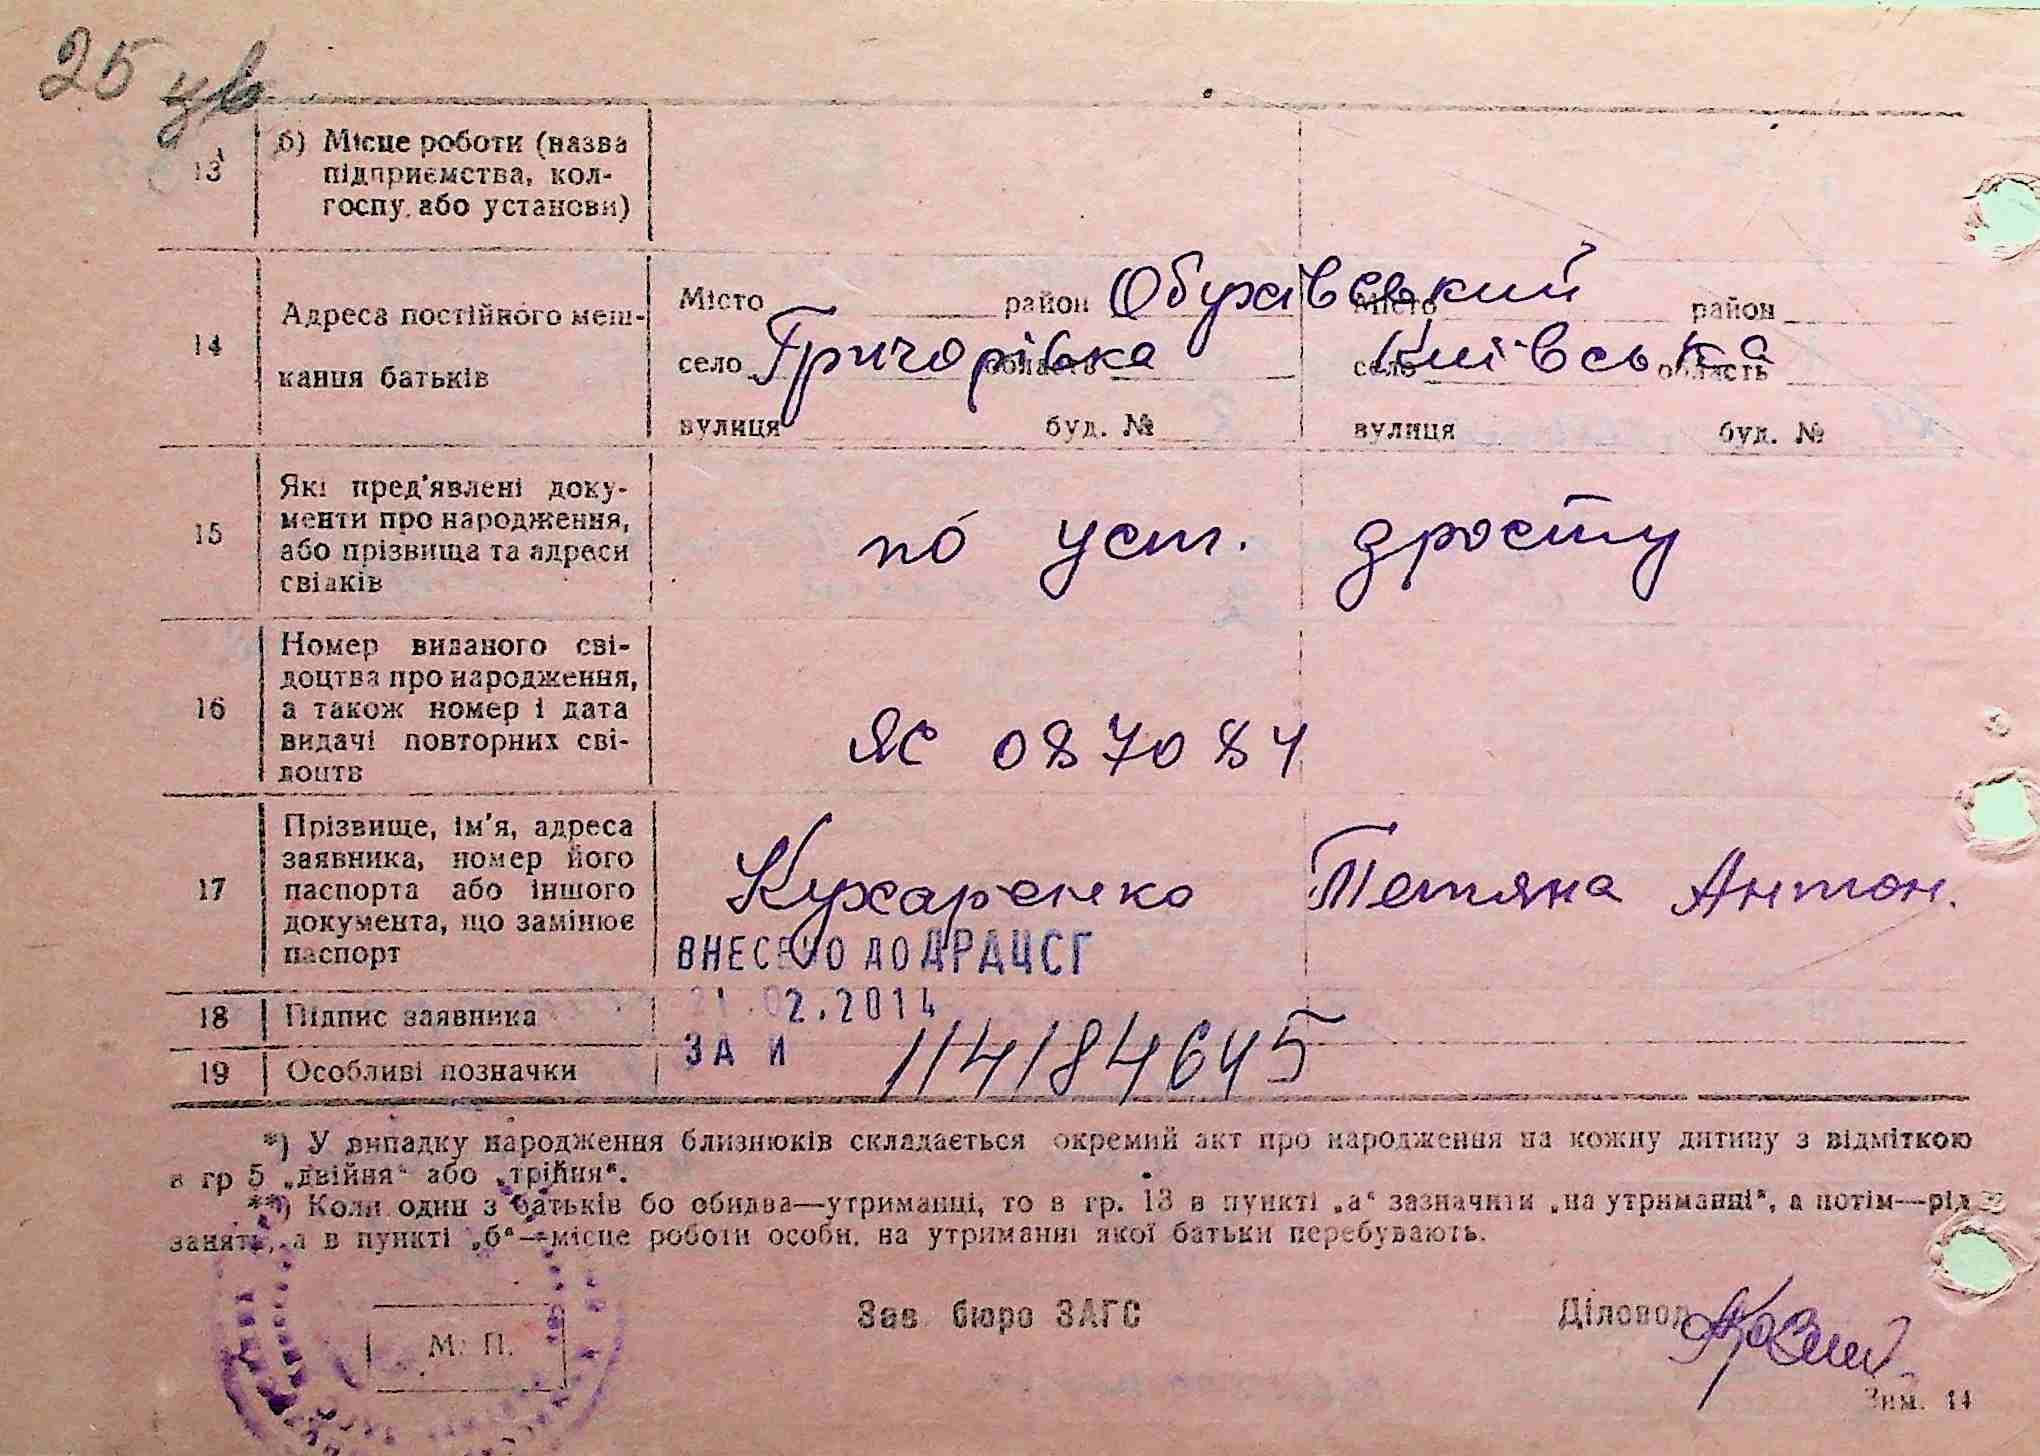 25 цв
13 б) Місце роботи (назва
підприємства, кол-
госпу, або установи)
14 Адреса постійного меш-
кання батьків
Місто район Обухівський Місто район
село Григорівка область село Київська область
вулиця буд. № вулиця буд. №
15 Які пред'явлені доку-
менти про народження,
або прізвища та адреси
свідків
по уст. зросту
16 Номер виданого сві-
доцтва про народження,
а також номер і дата
видачі повторних сві-
доцтв
ЯС 087084
17 Прізвище, ім'я, адреса
заявника, номер його
паспорта або іншого
документа, що замінює
паспорт
Кухаренко Тетяна Антон.
ВНЕСЕНО ДО ДРАЦСГ
21.02.2014
18 Підпис заявника
ЗА И 114184645
19 Особливі позначки
*) У випадку народження близнюків складається окремий акт про народження на кожну дитину з відміткою
в гр 5 „двійня“ або „трійня“.
**) Коли один з батьків бо обидва—утриманці, то в гр. 13 в пункті „а“ зазначити „на утриманні“, а потім—рід
занять, а в пункті „б“—місце роботи особи, на утриманні якої батьки перебувають.
М. П.
Зав. бюро ЗАГС
Діловод
Зим. 14